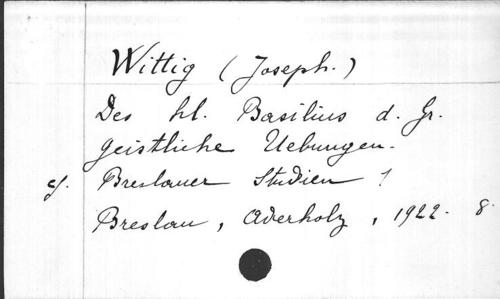 Wittig (Joseph.)
Des hl. Basilius d. Gr.
geistliche Uebungen.
cf. Breslauer Studien 1
Breslau, Aderholz, 1922. 8.